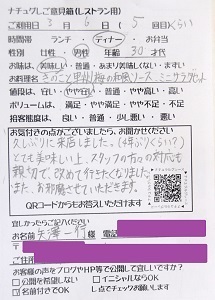 ナチュグしご意見箱(レストラン用)
3月6日(5)回くらい
時間帯 ランチ・ディナー・お弁当
性別 男性 男性 年齢 30才代
お味は、美味しい・普通・あまり美味しくない
お料理名 きのこと里山の和風ソース ミニサラダセット
値段は、安い・やや安い・普通・やや高い・高い
ボリュームは、満足・やや満足・普通・やや不足・不足
接客態度は、良い・普通・少し悪い・悪い
お気付きの点がございましたら、お聞かせください
久しぶりに来店しました。(4年ぶりくらい?)
とても美味しい上、スタッフの方の対応も
親切で、改めて行きたくなりました。
また、お邪魔させていただきます。
QRコードからもお答えいただけます
宜しかったらご記入ください
お名前 様 電話
〒
ご住所
お客様の声をブログやHP等で公開して宜しいですか?
□公開を希望しない □イニシャルならOK
☑名前付きでOK しますで点チェックお願いします